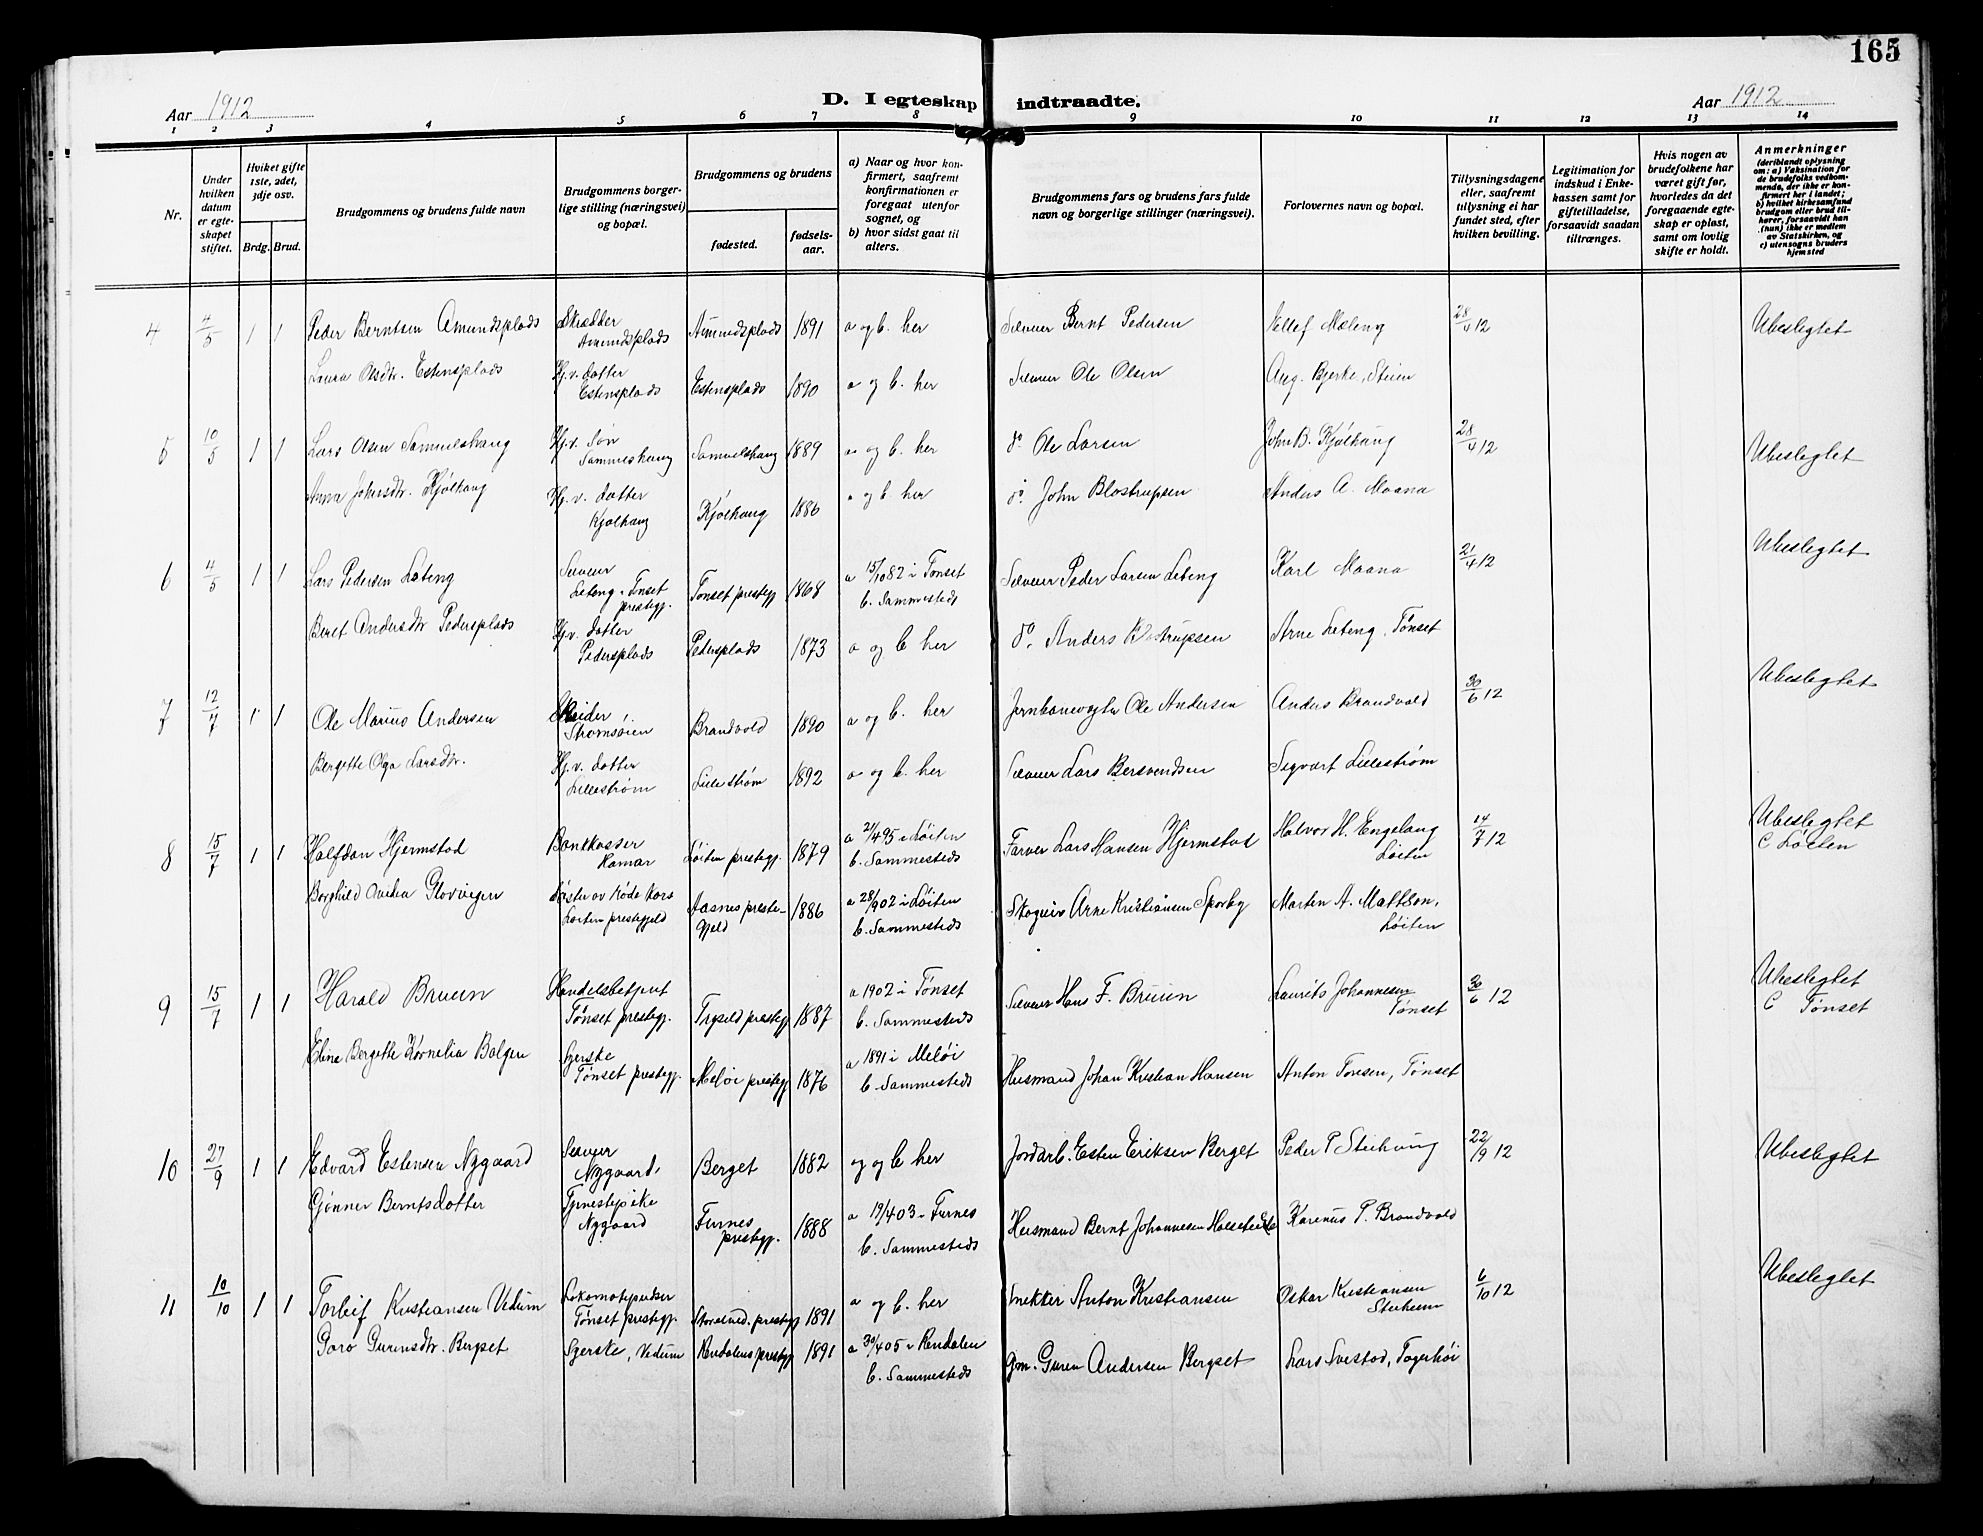 165
Aar 1912
D. I egteskap indtraadte.
Aar 1912
1 2 3 4 5 6 7 8 9 10 11 12 13 14
Nr.
Under hvilken datum er egteskapet stiftet.
Hviket gifte 1ste, 2det, 3dje osv.
Brdg. Brud.
Brudgommens og brudens fulde navn
Brudgommens borgerlige stilling (næringsvei) og bopæl.
Brudgommens og brudens
fødested.
fødselsaar.
a) Naar og hvor konfirmert, saafremt konfirmationen er foregaat utenfor sognet, og
b) hvor sidst gaat til alters.
Brudgommens fars og brudens fars fulde navn og borgerlige stillinger (næringsvei).
Forlovernes navn og bopæl.
Tillysningsdagene eller, saafremt tillysning ei har fundet sted, efter hvilken bevilling.
Legitimation for indskud i Enkekassen samt for giftetilladelse, forsaavidt saadan tiltrænges.
Hvis nogen av brudefolkene har været gift før, hvorledes da det foregaaende egteskap er opløst, samt om lovlig skifte er holdt.
Anmerkninger (deriblandt oplysning om: a) Vaksination for de brudefolks vedkommende, der ikke er konfirmert her i landet; b) hvilket kirkesamfund brudgom eller brud tilhører, forsaavidt han (hun) ikke er medlem av Statskirken, og c) utensogns bruders hjemsted
4 4/5 1 1 Peder Berntsen Amundsplads Skrædder Amundsplads Amundsplads 1891 a og b. her Bernt Pedersen Ellef Mæleng 28/4 12 Ubeslegtet
Laura Olsdtr. Estensplads Hj.v. datter Estensplads Estensplads 1890 a og b. her Ole Olsen Aug. Bjerke, Steien
5 10/5 1 1 Lars Olsen Samuelshaug Hj.v. Søn Sammeshaug Samuelshaug 1889 a og b. her do Ole Larsen John B. Kjølhaug 28/4 12 Ubeslegtet
Anna Johnsdtr. Kjølhaug Hj.v. datter Kjølhaug Kjølhaug 1886 a og b. her do. John Blostrupsen Anders A. Moana
6 4/5 1 1 Lars Pedersen Leteng Leteng, Tønset prestegj. Tønset prestegj 1868 a 15/10 82 i Tønset b. Sammesteds Peder Larsen Leteng Karl Moana 21/4 12 Ubeslegtet
Beret Andersdtr Pedersplads Hj.v. datter Pedersplads Pedersplads 1873 a og b her do. Anders Arne Leteng, Tønset
7 12/7 1 1 Ole Marius Andersen Strømsøien Brandvold 1890 a og b. her Jernbanevogter Ole Andersen Anders Brandvold 30/6 12 Ubeslegtet
Bergette Olga Larsdtr. Hj.v. datter Lillestrøm Lillestrøm 1892 a og b. her Lars Bersvendsen Sigvart Lillestrøm
8 15/7 1 1 Halfdan Hjermstad Bankkasser Hamar Løiten prestegj. 1879 a 21/4 95 i Løiten b. Sammesteds Farver Lars Hansen Hjermstad Halvor H. Engelaug Løiten 14/7 12 Ubeslegtet C Løeten
Borghild Glorvigen Søster av Røde Kors Løiten prestegjeld Aasnes prestegjeld 1886 a 28/9 02 i Løiten b. Sammesteds Skogeier Arne Kristiansen Sporby Marten A. Mattson, Løiten
9 15/7 1 1 Harald Bruen Handelsbetjent Tønset prestegj. Trysild prestegj 1887 a 1902 i Tønset b. Sammesteds Hans F. Bruen Laurits Johannesen Tønset 30/6 12 Ubeslegtet C Tønset
Eline Bergette Kornelia Bolgen Tønset prestegj. Meløi prestegj 1876 a 1891 i Meløi b. Sammesteds Husmand Johan Kristian Hansen Anton Tonsen, Tønset
10 27/9 1 1 Edvard Estensen Nygaard Nygaard, Berget 1882 og og b her Jordarb. Esten Eriksen Berget Peder P Steihaug 22/9 12 Ubeslegtet
Gønner Berntsdatter Tjenestepike Nygaard Furnes prestegj. 1888 a 19/4 03 i Furnes b. Sammesteds Husmand Bernt Johannesen Karenus P. Brandvold
11 10/10 1 1 Torleif Kristiansen Vedum Tønset prestegj. Storelvd. prestegj 1891 a og b. her Anton Kristiansen Oskar Kristiansen Steiheim 6/10 12 Ubeslegtet
Goro Gurensdtr. Bergset Vedum Rendalens prestegj 1891 a 30/4 05 i Rendalen b. Sammesteds Gm. Guren Andersen Bergset Lars